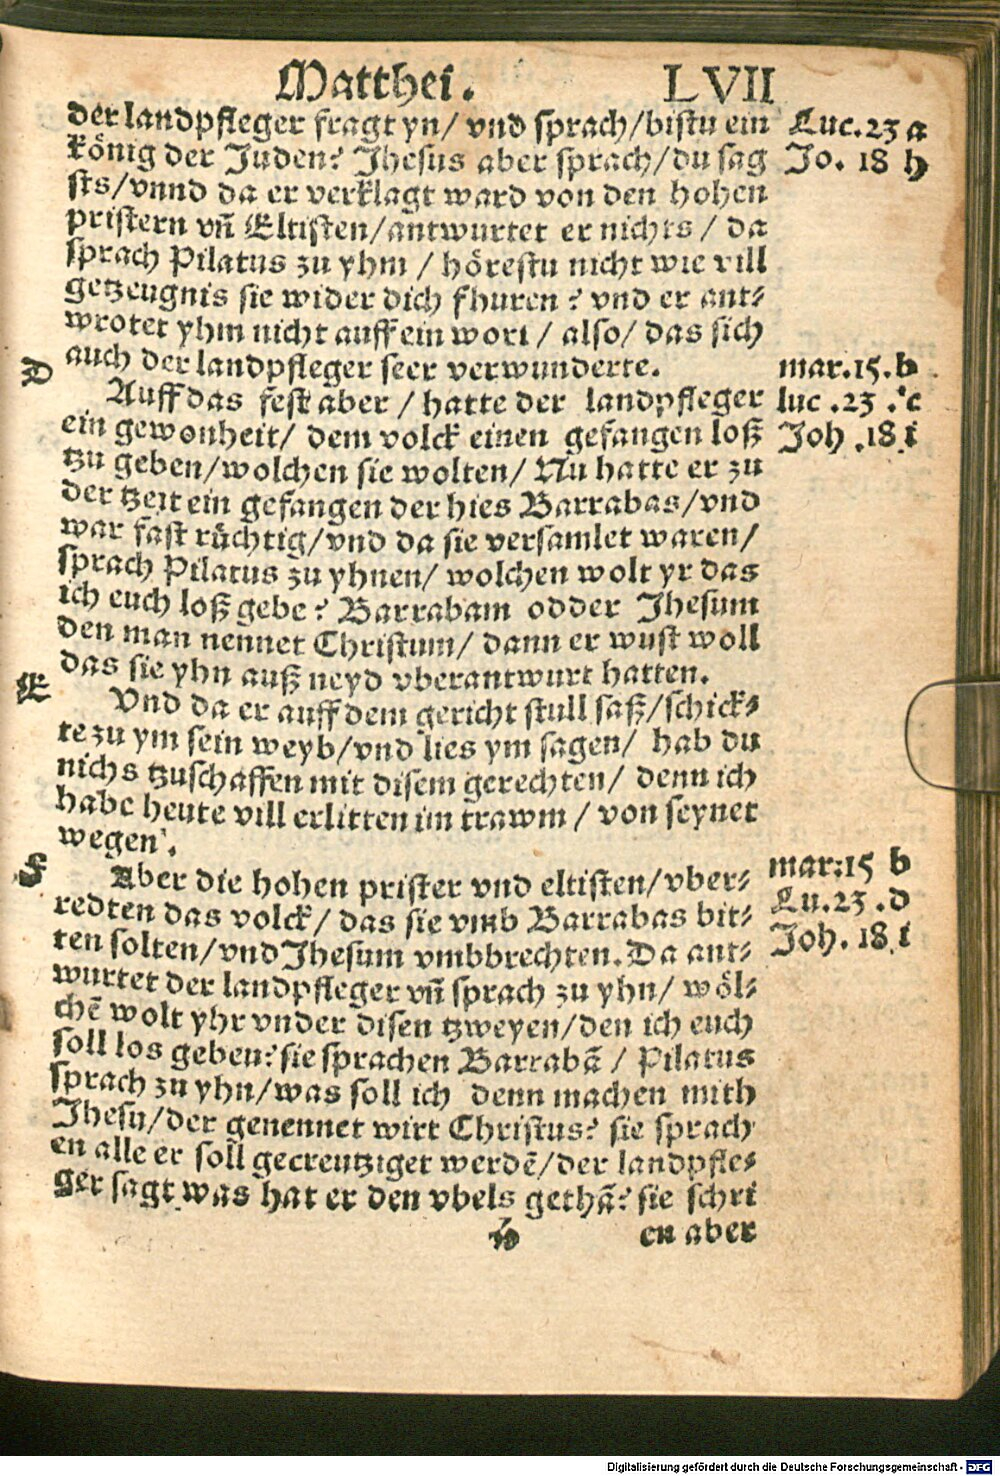 Matthei. LVII
der landpfleger fragt yn/ vnd sprach/bistu ein
könig der Juden? Jhesus aber sprach/du sag
sts/vnnd da er verklagt ward von den hohen
pristern vñ Eltisten/antwurtet er nichts / da
sprach Pilatus zu yhm / hörestu nicht wie vill
getzeugnis sie wider dich fhuren? vnd er ant⸗
wrotet yhm nicht auff ein wort / also/ das sich
auch der landpfleger seer verwunderte.
Luc.23 a
Jo. 18 h
D
Auff das fest aber / hatte der landpfleger
ein gewonheit/ dem volck einen gefangen loß
tzu geben/wolchen sie wolten/ Nu hatte er zu
der tzeit ein gefangen der hies Barrabas/vnd
war fast rüchtig/vnd da sie versamlet waren/
sprach Pilatus zu yhnen/ wolchen wolt yr das
ich euch loß gebe? Barrabam odder Jhesum
den man nennet Christum/ dann er wust woll
das sie yhn auß neyd vberantwurt hatten.
mar.15.b
luc.23.c
Joh.18 i
E
Vnd da er auff dem gericht stull saß/schick⸗
te zu ym sein weyb/vnd lies ym sagen/ hab du
nichs tzuschaffen mit disem gerechten/ denn ich
habe heute vill erlitten im trawm / von seynet
wegen.
F
Aber die hohen prister vnd eltisten/vber⸗
redten das volck/ das sie vmb Barrabas bit⸗
ten solten/vnd Jhesum vmbbrechten. Da ant⸗
wurtet der landpfleger vñ sprach zu yhn/ wöl⸗
chē wolt yhr vnder disen tzweyen/den ich euch
soll los geben? sie sprachen Barrabā / Pilatus
sprach zu yhn/was soll ich denn machen mith
Jhesu/der genennet wirt Christus? sie sprach
en alle er soll gecreutziget werdē/der landpfle⸗
ger sagt was hat er den vbels gethā? sie schri
mar:15 b
Lu.23.d
Joh.18.i
en aber
Digitalisierung gefördert durch die Deutsche Forschungsgemeinschaft - DFG